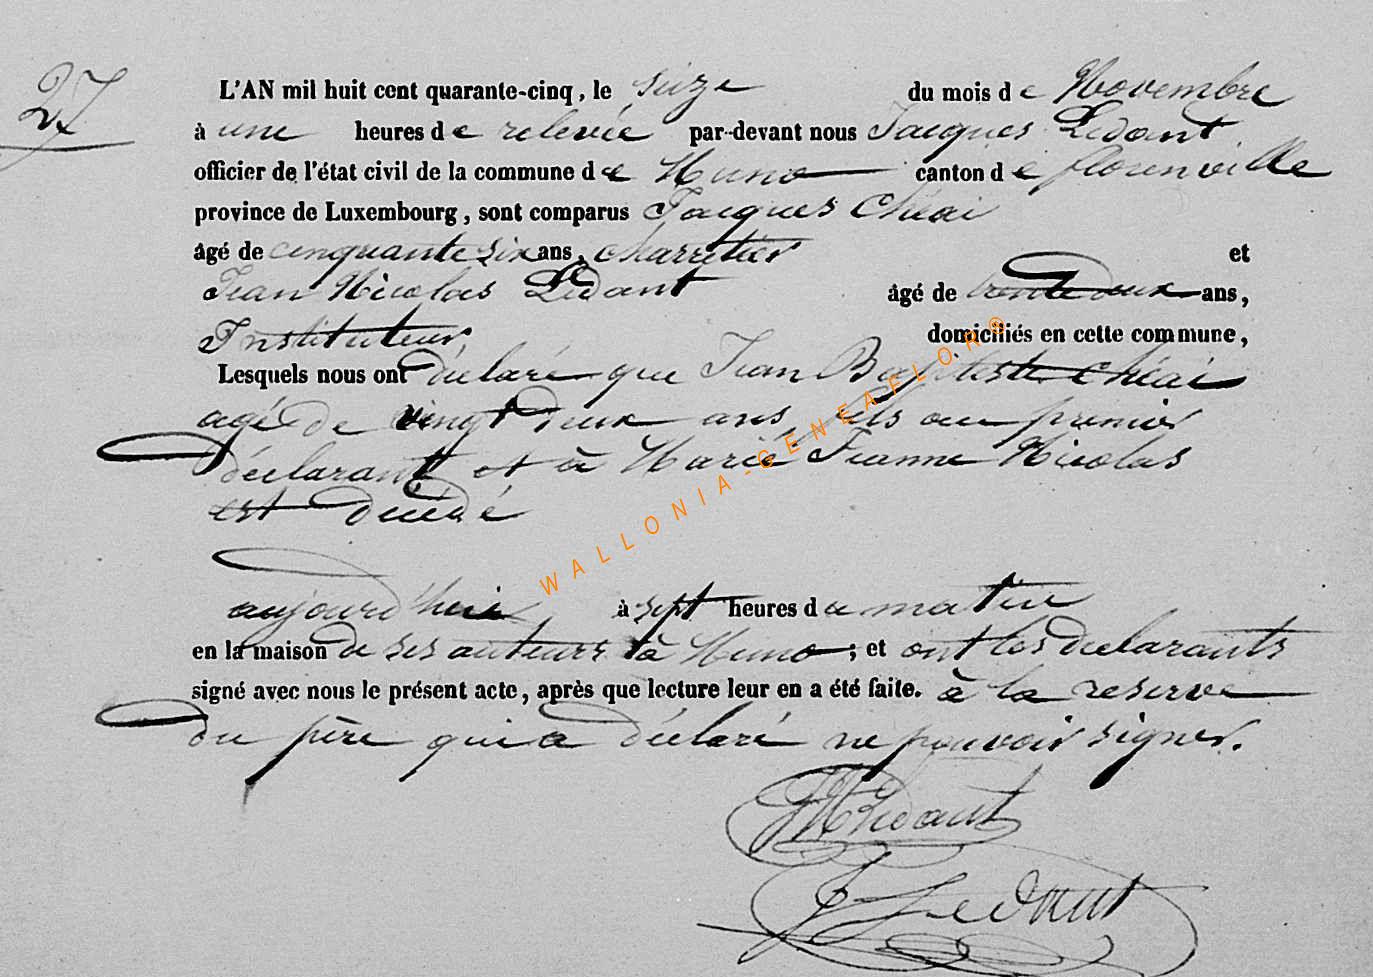 27
L'AN mil huit cent quarante-cinq, le seize du mois de Novembre
à une heures de relevée par-devant nous Jacques Ledant
officier de l'état civil de la commune de Muno canton de florenville
province de Luxembourg, sont comparus Jacques Chéai
âgé de cinquante six ans, charretier et
Jean Nicolas Ledant âgé de trente deux ans,
Instituteur, domiciliés en cette commune,
Lesquels nous ont déclaré que Jean Baptiste Chéai
agé de vingt deux ans, fils au premier
déclarant et à Marie Jeanne Nicolas
est décédé
aujourd'hui à sept heures du matin
en la maison de ses auteurs à Muno; et ont les declarants
signé avec nous le présent acte, après que lecture leur en a été faite. à la reserve
du père qui a déclaré ne pouvoir signer.
JN Ledant
J Ledant
WALLONIA-GENEAFLOR©